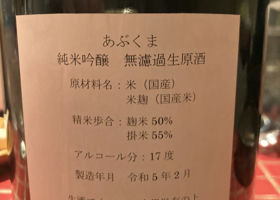 あぶくま
純米吟醸　無濾過生原酒
原材料名：米（国産）
米麹（国産米）
精米歩合：麹米50%
掛米55%
アルコール分：17度
製造年月　令和5年2月